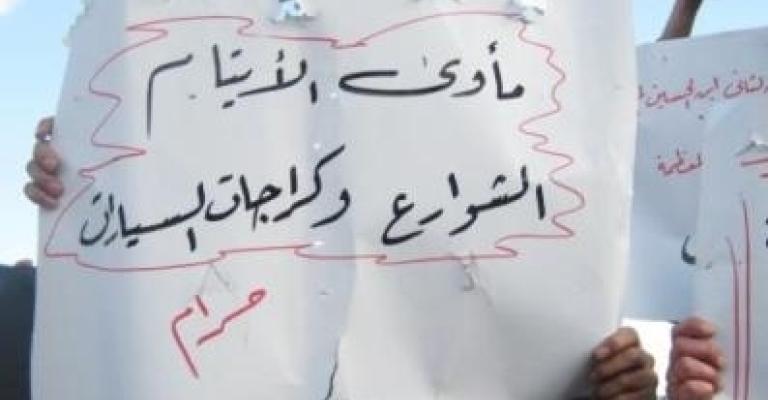 مأوى الأيتام
الشوارع وكراجات السيارات
حرام
الثاني ابن الحسين